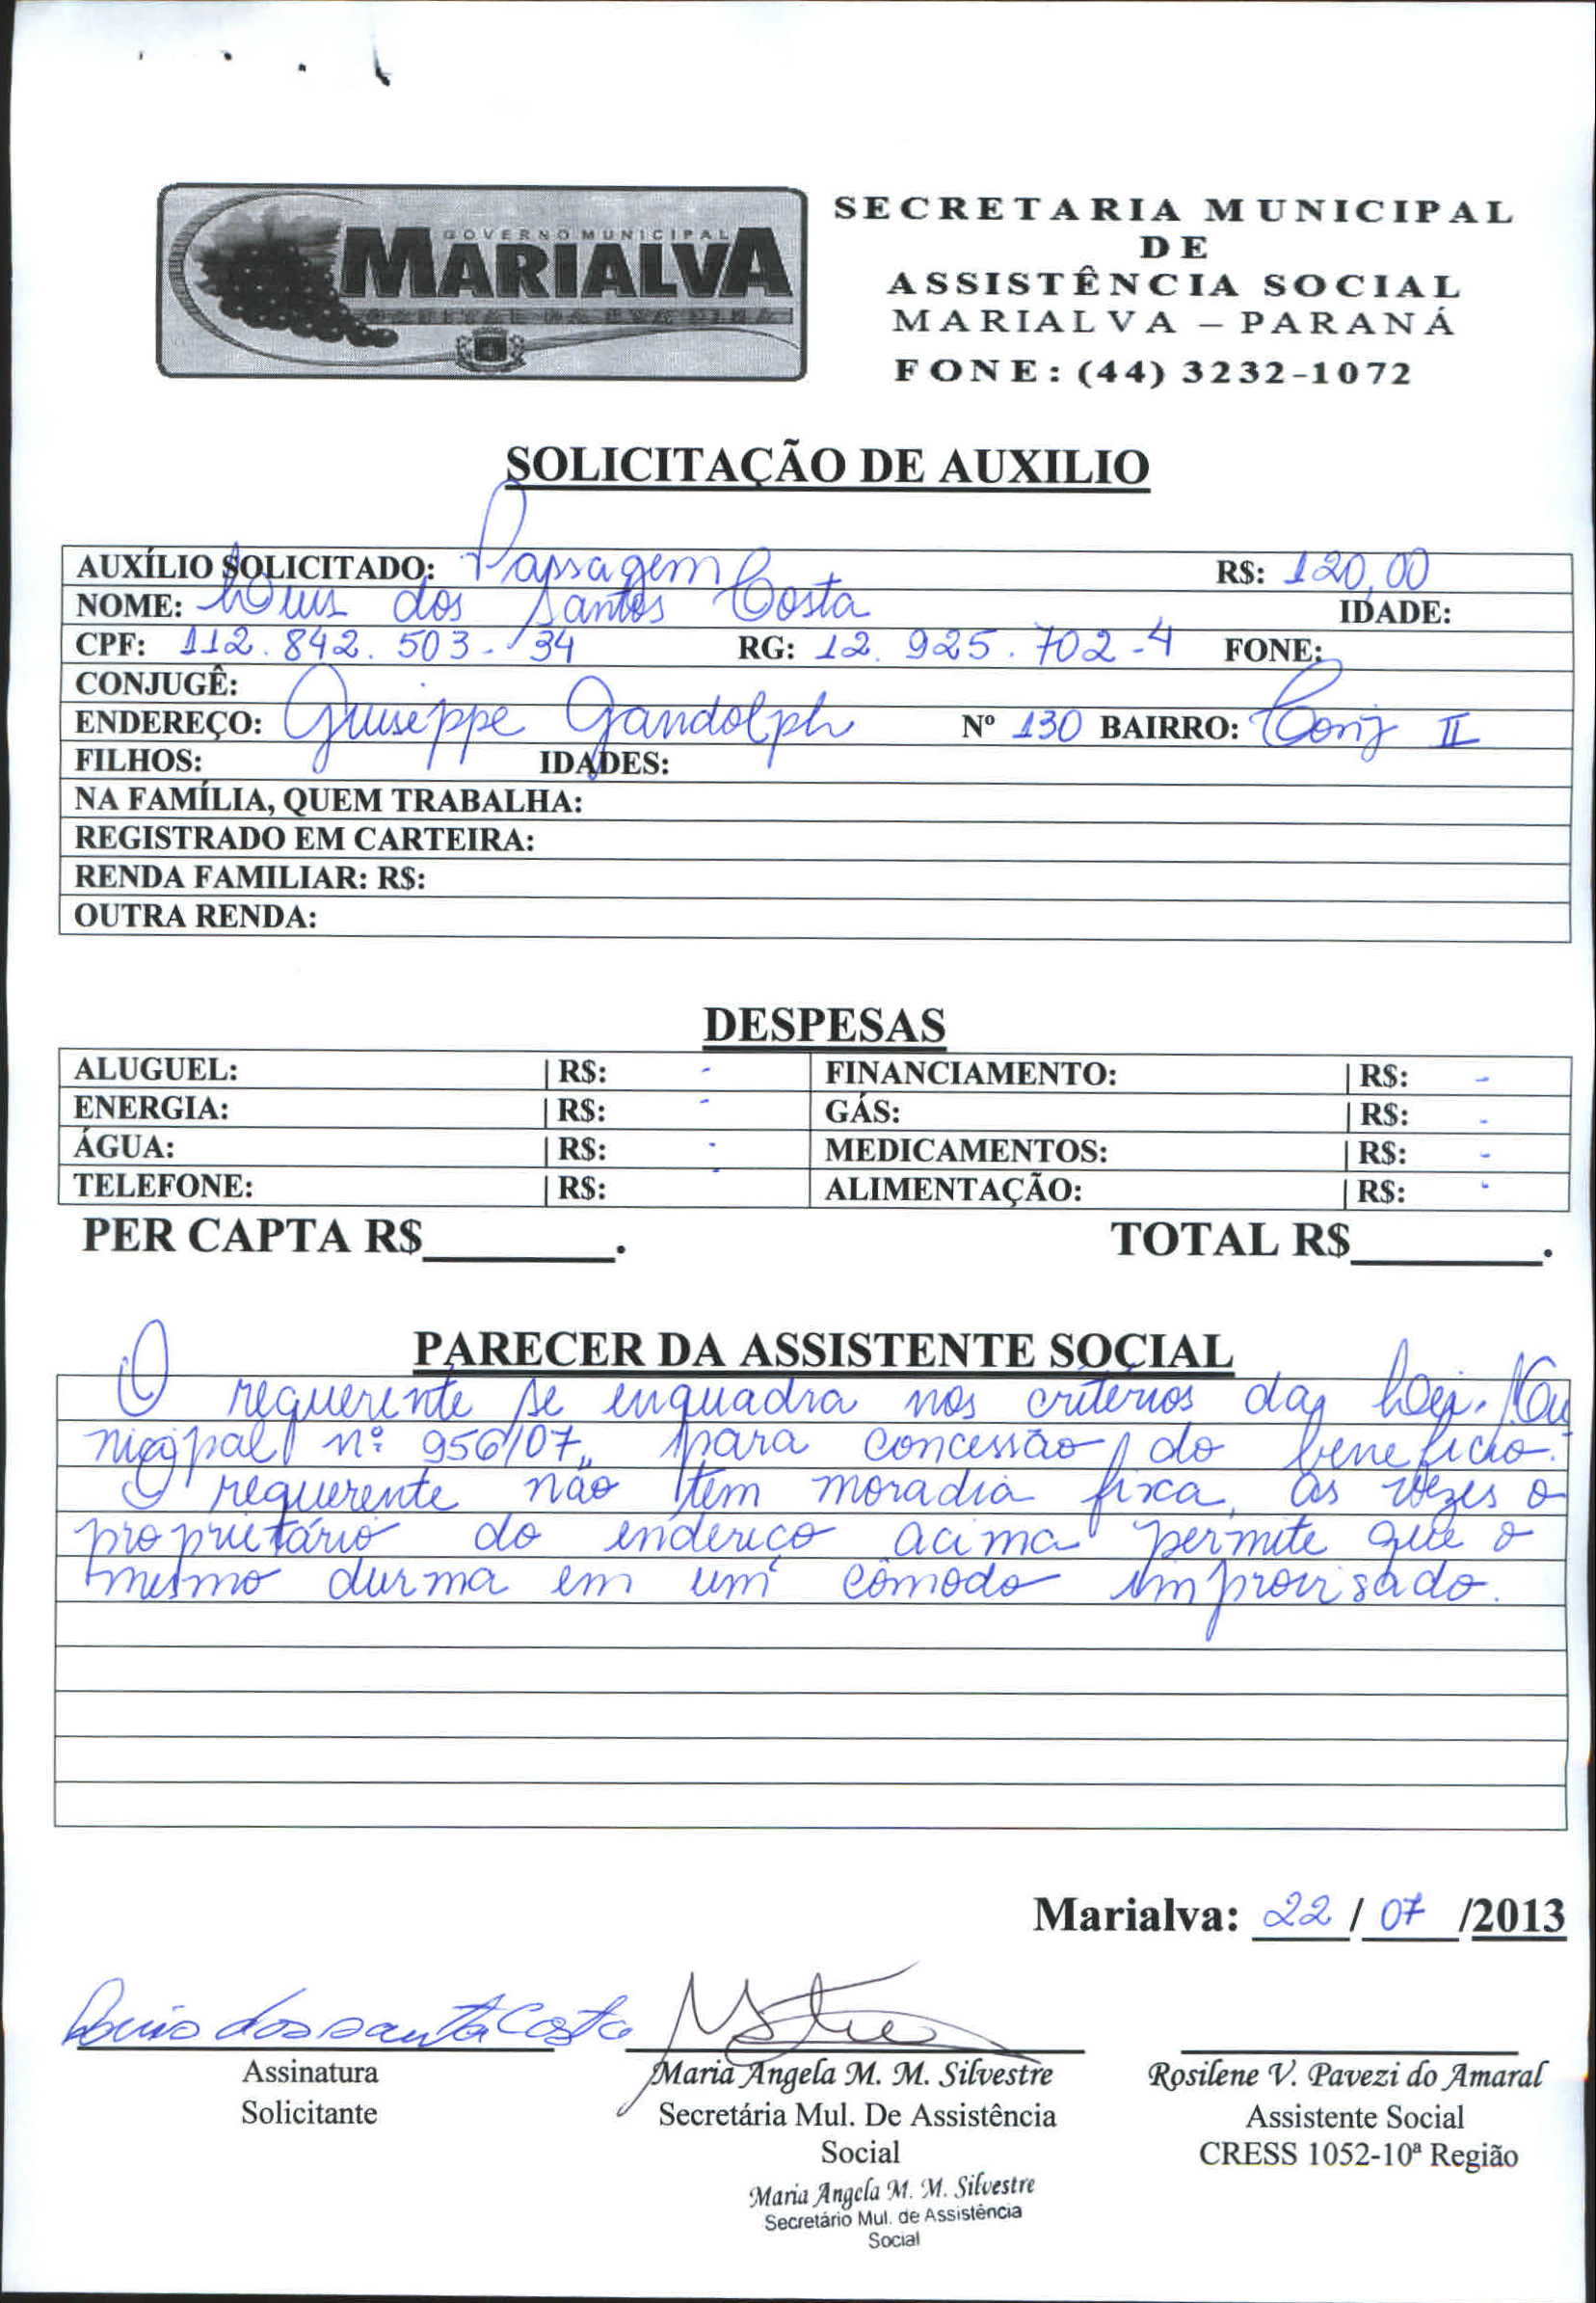 GOVERNO MUNICIPAL
MARIALVA
CAPITAL DA UVA FINA
SECRETARIA MUNICIPAL
DE
ASSISTÊNCIA SOCIAL
MARIALVA – PARANÁ
FONE: (44) 3232-1072
SOLICITAÇÃO DE AUXILIO
AUXÍLIO SOLICITADO: Passagem R$: 120,00
NOME: Luis dos Santos Costa IDADE:
CPF: 112.842.503-34 RG: 12.925.702-4 FONE:
CONJUGÊ:
ENDEREÇO: Giuseppe Gandolph Nº 130 BAIRRO: Conj II
FILHOS: IDADES:
NA FAMÍLIA, QUEM TRABALHA:
REGISTRADO EM CARTEIRA:
RENDA FAMILIAR: R$:
OUTRA RENDA:
DESPESAS
ALUGUEL: | R$: - FINANCIAMENTO: | R$: -
ENERGIA: | R$: - GÁS: | R$: -
ÁGUA: | R$: - MEDICAMENTOS: | R$: -
TELEFONE: | R$: - ALIMENTAÇÃO: | R$: -
PER CAPTA R$_______. TOTAL R$_______.
PARECER DA ASSISTENTE SOCIAL
O requerente se enquadra nos critérios da Lei Mu
nicipal nº 956/07, para concessão do benefício.
O requerente não tem moradia fixa, às vezes o
proprietário do endereço acima permite que o
mesmo durma em um cômodo improvisado.
Marialva: 22 / 07 /2013
Luis dos Santos Costa
Assinatura
Solicitante
Maria Angela M. M. Silvestre
Secretária Mul. De Assistência
Social
Maria Angela M. M. Silvestre
Secretário Mul. de Assistência
Social
Rosilene V. Pavezi do Amaral
Assistente Social
CRESS 1052-10ª Região